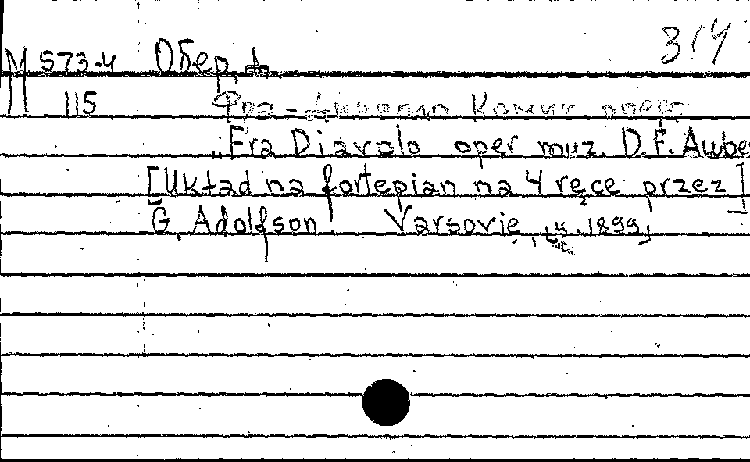 314
М 573-4 Обер, Д
115 Фра-Дьяволо Комич опера
"Fra Diavolo oper muz. D.F. Aube
[Układ na fortepian na 4 ręce przez]
G. Adolfson. Varsovie, 1899